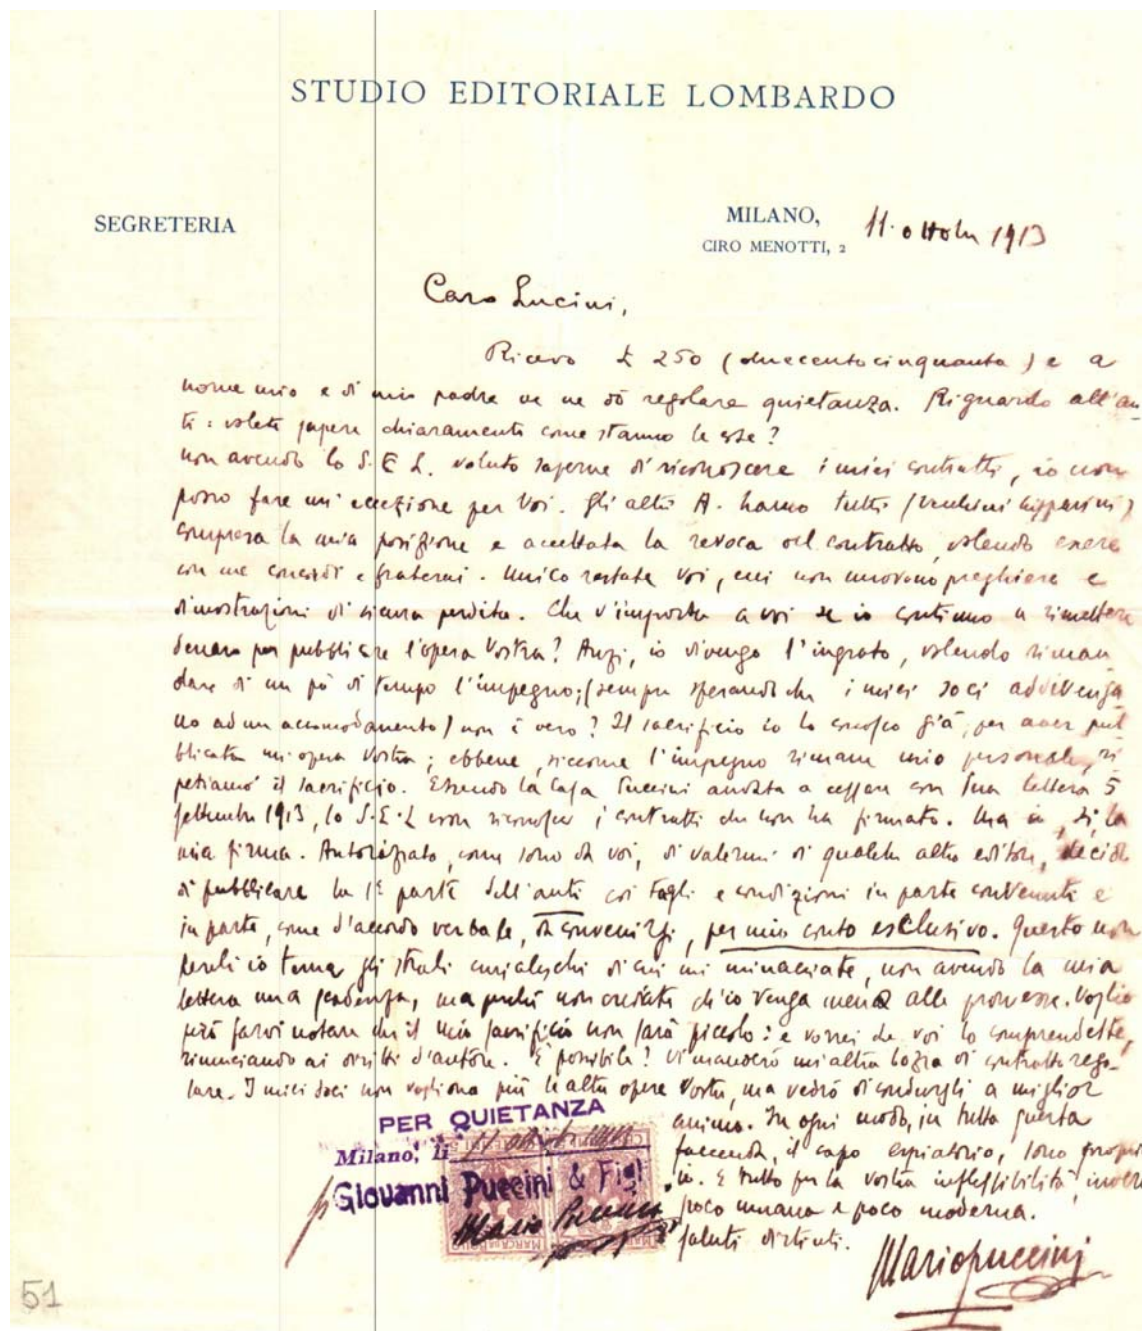 STUDIO EDITORIALE LOMBARDO
SEGRETERIA
MILANO,
CIRO MENOTTI, 2
11. ottobre 1913
Caro Lucini,
Ricevo £ 250 (duecentocinquanta) e a
nome mio e di mio padre ve ne dò regolare quietanza. Riguardo all'an-
ti: volete sapere chiaramente come stanno le cose?
non avendo lo S.E.L. voluto saperne di riconoscere i miei contratti, io non
posso fare un' eccezione per Voi. Gli altri A. hanno tutti
compresa la mia posizione e accettata la revoca del contratto, volendo essere
con me concordi e fraterni. Unico restate Voi, cui non muovono preghiere e
dimostrazioni di sicura perdita. Che v'importa a voi se io continuo a rimettere
denaro per pubblicare l'opera Vostra? Anzi, io divengo l'ingrato, volendo riman
dare di un pò di tempo l'impegno; (sempre sperando che i miei soci addivenga
no ad un accomodamento) non è vero? Il sacrificio io lo conosco già, per aver pub
blicata un'opera Vostra; ebbene, siccome l'impegno rimane mio personale, ri
petiamo il sacrificio. Essendo la Casa Puccini andata a cessare con sua lettera 5
settembre 1913, lo S.E.L non riconosce i contratti che non ha firmato. Ma io, sì, la
mia firma. Autorizzato, come sono da voi, di valermi di qualche altro editore, decido
di pubblicare la 1ª parte dell'anti coi tagli e condizioni in parte convenute e
in parte, come d'accordo verbale, da convenirsi, per mio conto esclusivo. Questo non
perchè io tema gli strali curialeschi di cui mi minacciate, non avendo la mia
lettera una scadenza, ma perchè non crediate ch'io venga meno alle promesse. Voglio
però farvi notare che il mio sacrificio non sarà piccolo: e vorrei che voi lo comprendeste,
rinunciando ai diritti d'autore. È possibile? Vi manderò un'altra bozza di contratto rego-
lare. I miei soci non vogliono più le altre opere Vostre, ma vedrò di condurgli a miglior
animo. In ogni modo, in tutta questa
faccenda, il capo espiatorio, sono propri
io. E tutto per la vostra inflessibilità, inoltre
poco umana e poco moderna.
Saluti distinti.
Mario Puccini
PER QUIETANZA
Milano, li
p Giovanni Puccini & Figli
Mario Puccini
MARCA DA BOLLO
51